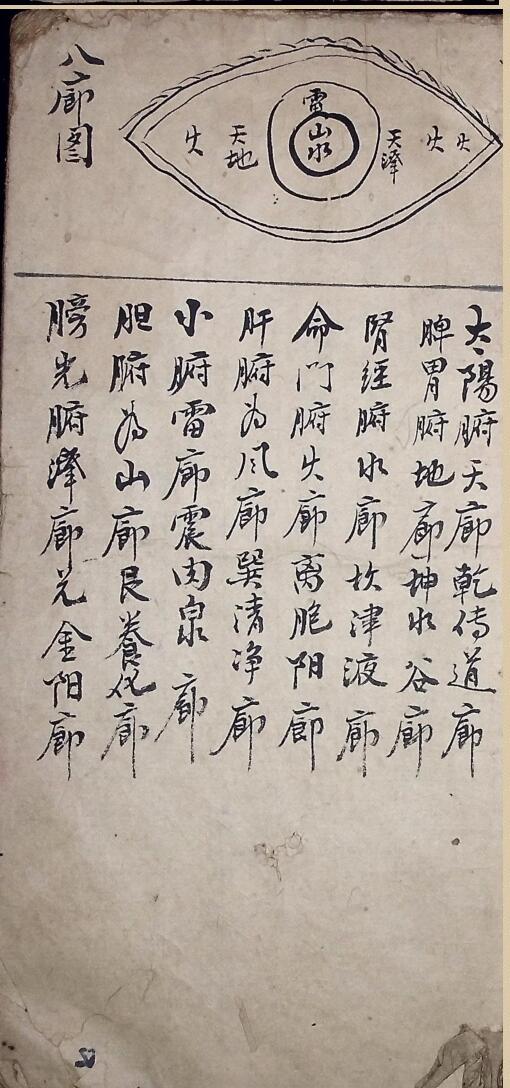 八廓图
火 天地 雷 山 水 天澤 火 火
太陽腑天廓乾傳道廓
脾胃腑地廓坤水谷廓
腎經腑水廓坎津液廓
命门腑火廓离胞阳廓
肝腑为风廓巽清净廓
小腑雷廓震肉泉廓
胆腑为山廓艮養化廓
膀光腑澤廓兑金阳廓